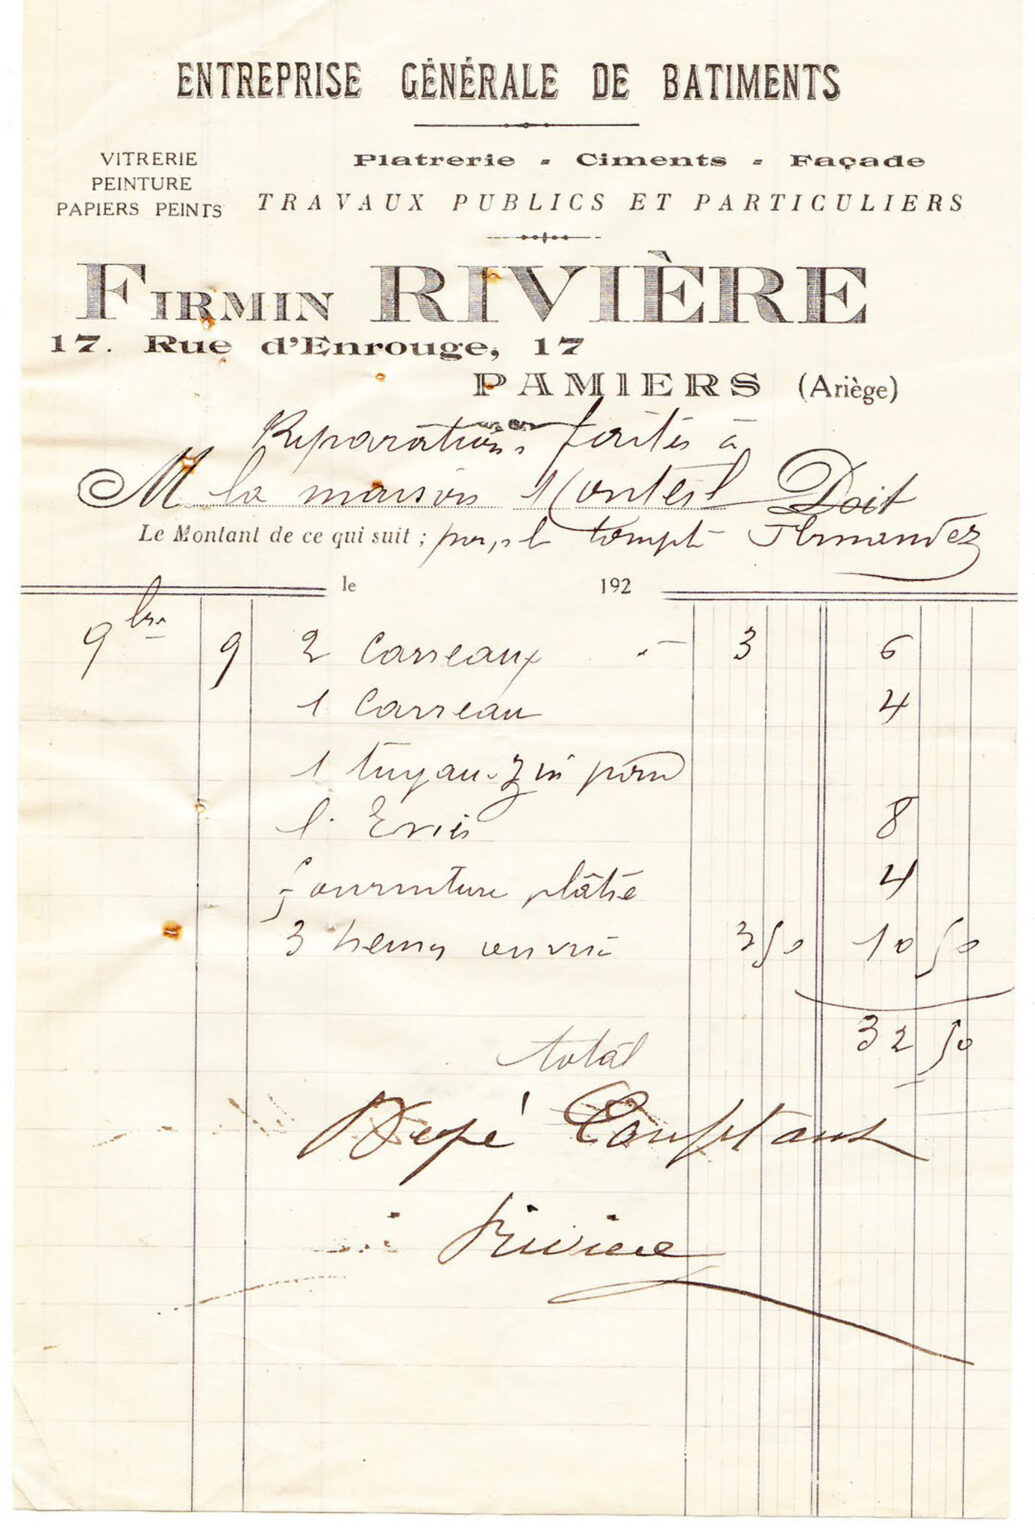 ENTREPRISE GÉNÉRALE DE BATIMENTS
VITRERIE
PEINTURE
PAPIERS PEINTS
Platrerie - Ciments - Façade
TRAVAUX PUBLICS ET PARTICULIERS
FIRMIN RIVIÈRE
17. Rue d'Enrouge, 17
PAMIERS (Ariège)
Réparations faites à
M la maison Monteil Doit
Le Montant de ce qui suit ; pour le compte Fernandez
le 192
9bre 9 2 Carreaux 3 6
1 Carreau 4
1 tuyau zin pour
l'Evié 8
fourniture plâtre 4
3 heures ouvrié 3 50 10 50
total 32 50
Comptant
Riviere